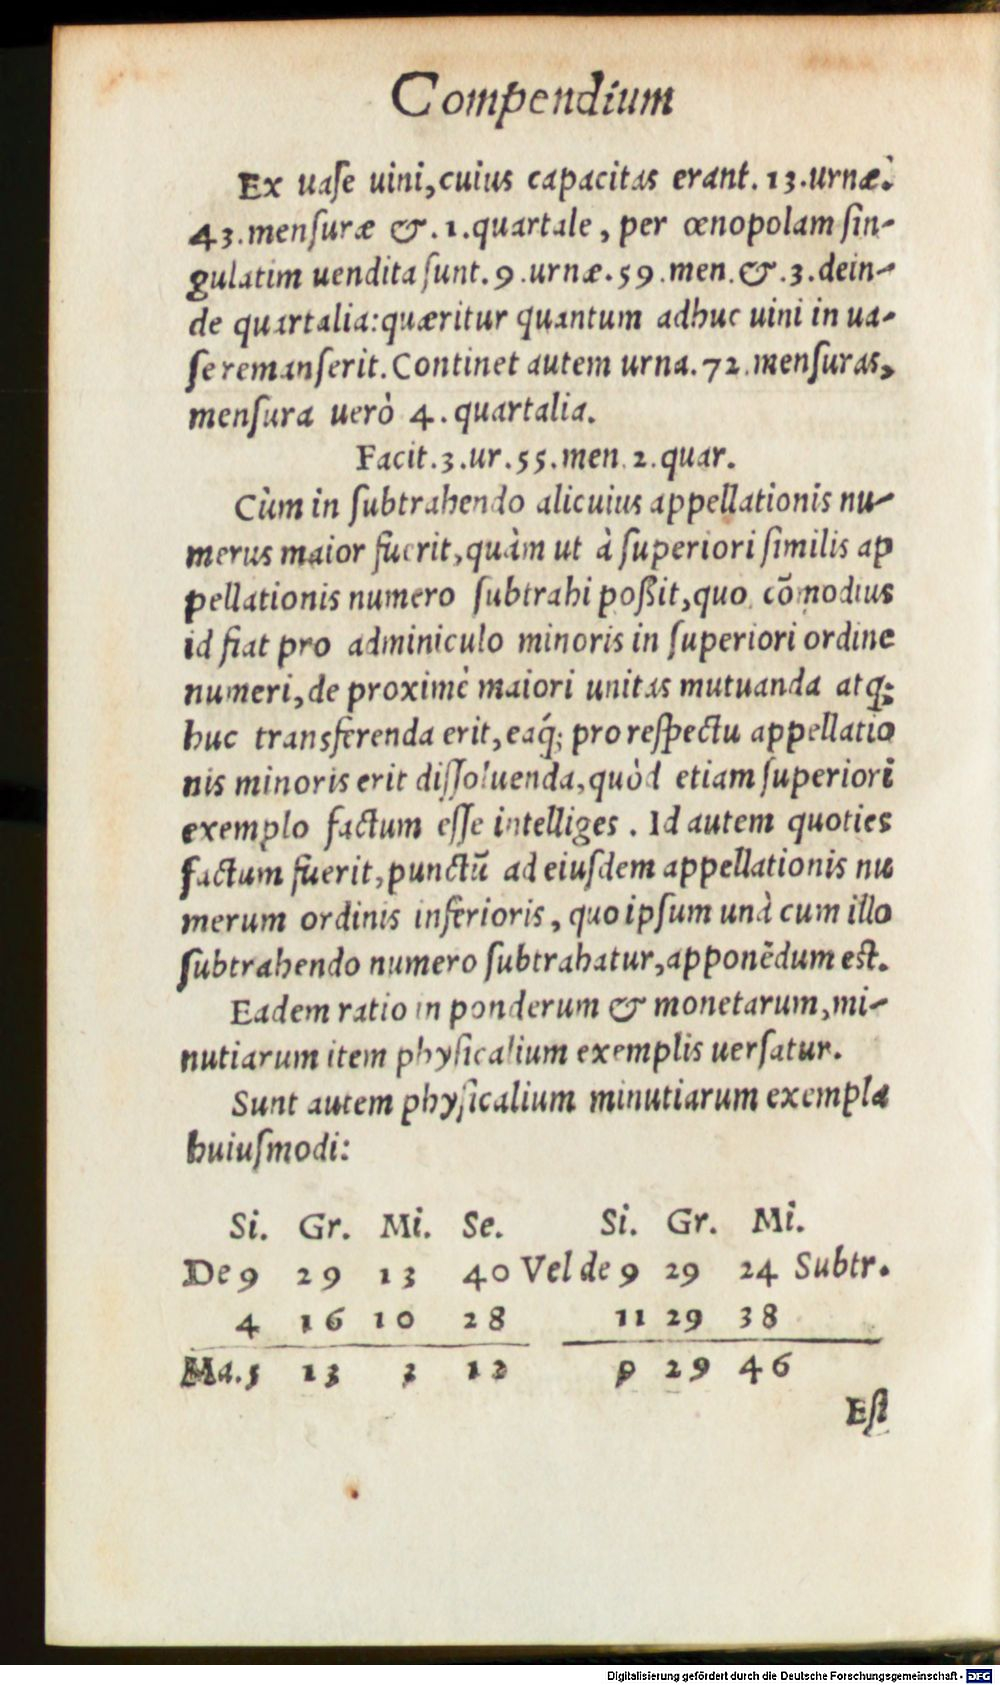 Compendium
Ex uaſe uini, cuius capacitas erant. 13. urnæ.
43. menſuræ &. 1. quartale, per œnopolam ſin-
gulatim uendita ſunt. 9. urnæ. 59. men. &. 3. dein-
de quartalia: quæritur quantum adhuc uini in ua-
ſe remanſerit. Continet autem urna. 72. menſuras,
menſura uerò 4. quartalia.
Facit. 3. ur. 55. men. 2. quar.
Cùm in ſubtrahendo alicuius appellationis nu-
merus maior fuerit, quàm ut à ſuperiori ſimilis ap
pellationis numero ſubtrahi poßit, quo cõmodius
id fiat pro adminiculo minoris in ſuperiori ordine
numeri, de proximè maiori unitas mutuanda atq;
huc transferenda erit, eaq́; pro reſpectu appellatio
nis minoris erit diſſoluenda, quòd etiam ſuperiori
exemplo factum eſſe intelliges. Id autem quoties
factum fuerit, punctũ ad eiuſdem appellationis nu
merum ordinis inferioris, quo ipſum unà cum illo
ſubtrahendo numero ſubtrahatur, apponẽdum est.
Eadem ratio in ponderum & monetarum, mi-
nutiarum item phyſicalium exemplis uerſatur.
Sunt autem phyſicalium minutiarum exempla
huiuſmodi:
Si. Gr. Mi. Se. Si. Gr. Mi.
De 9 29 13 40 Vel de 9 29 24 Subtr.
4 16 10 28 11 29 38
Ma. 5 13 3 12 9 29 46
Eſt
Digitalisierung gefördert durch die Deutsche Forschungsgemeinschaft - DFG